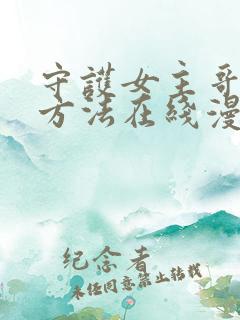 守護女主哥
方法在綫漫
纪念者
未经同意禁止转载